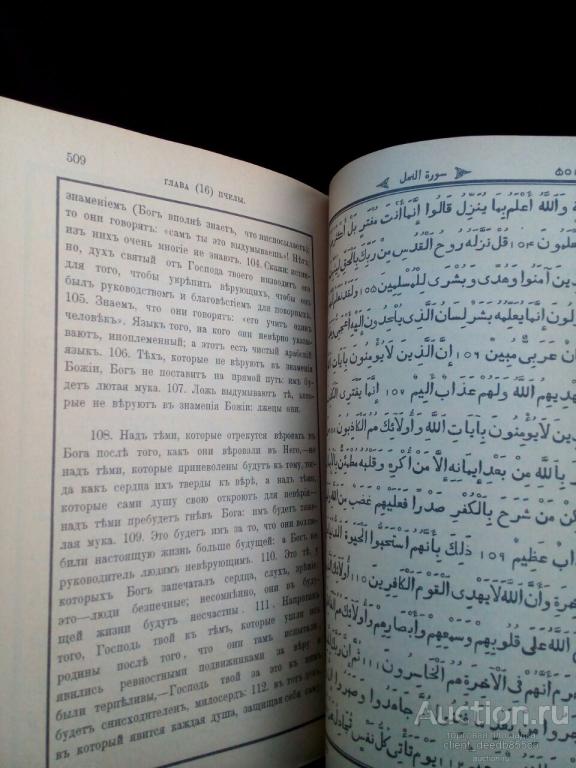 509
ГЛАВА (16) ПЧЕЛЫ.
знаменіемъ (Богъ вполнѣ знаетъ, что ниспосылаетъ),
то они говорятъ: «самъ ты это выдумываешь»! Нѣтъ,
изъ нихъ очень многіе не знаютъ. 104. Скажи:
но, духъ святый отъ Господа твоего низводитъ
для того, чтобы укрѣпить вѣрующихъ, чтобы онъ
былъ руководствомъ и благовѣстіемъ для покорныхъ.
105. Знаемъ, что они говорятъ: «его учитъ одинъ
человѣкъ». Языкъ того, на кого они невѣрно указы-
ваютъ, иноплеменный; а этотъ есть чистый арабскій
языкъ. 106. Тѣхъ, которые не вѣруютъ въ знаменія
Божіи, Богъ не поставитъ на прямой путь: имъ бу-
детъ лютая мука. 107. Ложь выдумываютъ тѣ, кото-
рые не вѣруютъ въ знаменія Божіи: лжецы они.
108. Надъ тѣми, которые отрекутся вѣровать въ
Бога послѣ того, какъ они вѣровали въ Него,—не
надъ тѣми, которые приневолены будутъ къ тому, тог-
да какъ сердца ихъ тверды въ вѣрѣ, а надъ тѣми,
которые сами душу свою откроютъ для невѣрія—
надъ тѣми пребудетъ гнѣвъ Бога: имъ будетъ тяже-
лая мука. 109. Это будетъ имъ за то, что они возлю-
били настоящую жизнь больше будущей: а Богъ не
руководитель людямъ невѣрующимъ. 110. Это тѣ, у
которыхъ Богъ запечаталъ сердца, слухъ, зрѣніе:
это—люди безпечные; несомнѣнно, они въ буду-
щей жизни будутъ несчастны. 111. Напротивъ
того, Господь твой къ тѣмъ, которые ушли изъ
родины послѣ того, что они тамъ испытали,
явились ревностными подвижниками за вѣру и
были терпѣливы,—Господь твой за это къ нимъ
будетъ снисходителенъ, милосердъ: 112. въ тотъ день,
въ который явится каждая душа, защищая себя саму
سورة النحل
وَاللَّهُ أَعْلَمُ بِمَا يُنَزِّلُ قَالُوا إِنَّمَا أَنْتَ مُفْتَرٍ بَلْ
١٠٤ قُلْ نَزَّلَهُ رُوحُ الْقُدُسِ مِنْ رَبِّكَ بِالْحَقِّ
آمَنُوا وَهُدًى وَبُشْرَى لِلْمُسْلِمِينَ ١٠٥ وَلَقَدْ
إِنَّمَا يُعَلِّمُهُ بَشَرٌ لِسَانُ الَّذِي يُلْحِدُونَ إِلَيْهِ
عَرَبِيٌّ مُبِينٌ ١٠٦ إِنَّ الَّذِينَ لَا يُؤْمِنُونَ بِآيَاتِ
اللَّهُ وَلَهُمْ عَذَابٌ أَلِيمٌ ١٠٧ إِنَّمَا يَفْتَرِي
لَا يُؤْمِنُونَ بِآيَاتِ اللَّهِ وَأُولَائِكَ هُمُ الْكَاذِبُونَ
بِاللَّهِ مِنْ بَعْدِ إِيمَانِهِ إِلَّا مَنْ أُكْرِهَ وَقَلْبُهُ مُطْمَئِنٌّ
مَنْ شَرَحَ بِالْكُفْرِ صَدْرًا فَعَلَيْهِمْ غَضَبٌ مِنَ
عَظِيمٌ ١٠٩ ذَلِكَ بِأَنَّهُمُ اسْتَحَبُّوا الْحَيَوةَ
وَأَنَّ اللَّهَ لَا يَهْدِي الْقَوْمَ الْكَافِرِينَ ١١٠
اللَّهُ عَلَى قُلُوبِهِمْ وَسَمْعِهِمْ وَأَبْصَارِهِمْ
أَنَّهُمْ فِي الْآخِرَةِ هُمُ الْخَاسِرُونَ ١١١ ثُمَّ إِنَّ
جَاهَدُوا وَصَبَرُوا
يَوْمَ تَأْتِي كُلُّ نَفْسٍ
Аукцион.ru
торговая площадка
auction.ru